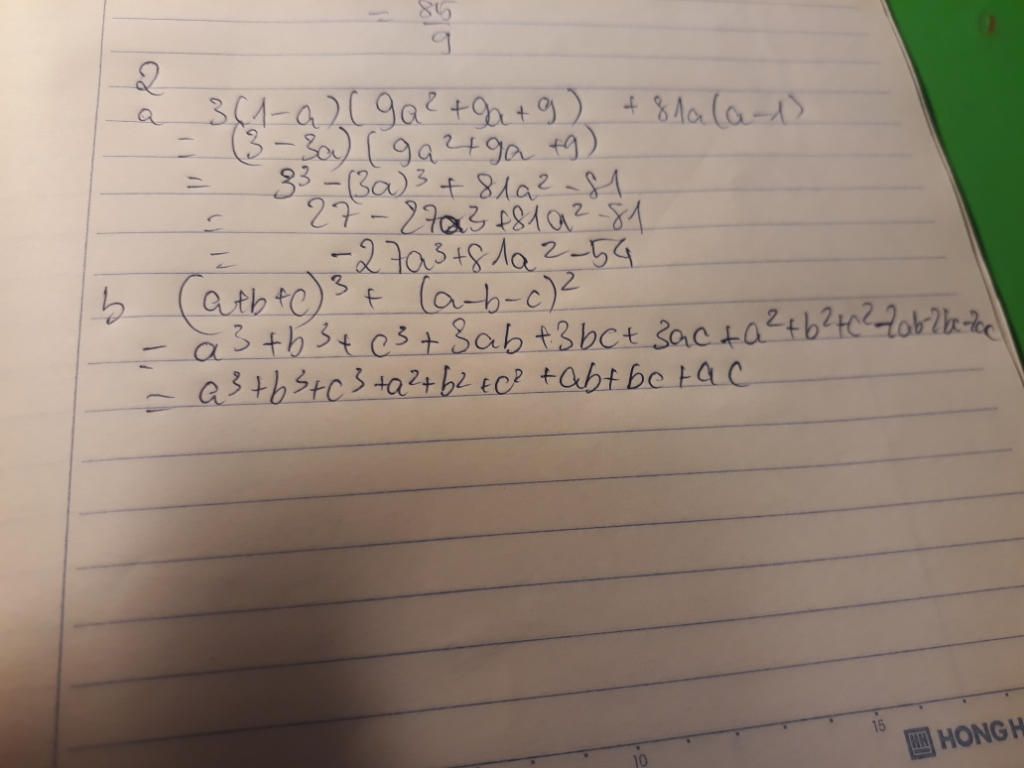 = 85/9
2
a 3(1-a)(9a²+9a+9) + 81a(a-1)
= (3-3a)(9a²+9a+9)
= 3³-(3a)³+81a²-81
= 27-27a³+81a²-81
= -27a³+81a²-54
b (a+b+c)³+(a-b-c)²
= a³+b³+c³+3ab+3bc+3ac+a²+b²+c²-2ab-2bc-2ac
= a³+b³+c³+a²+b²+c²+ab+bc+ac
10
15
HONG H